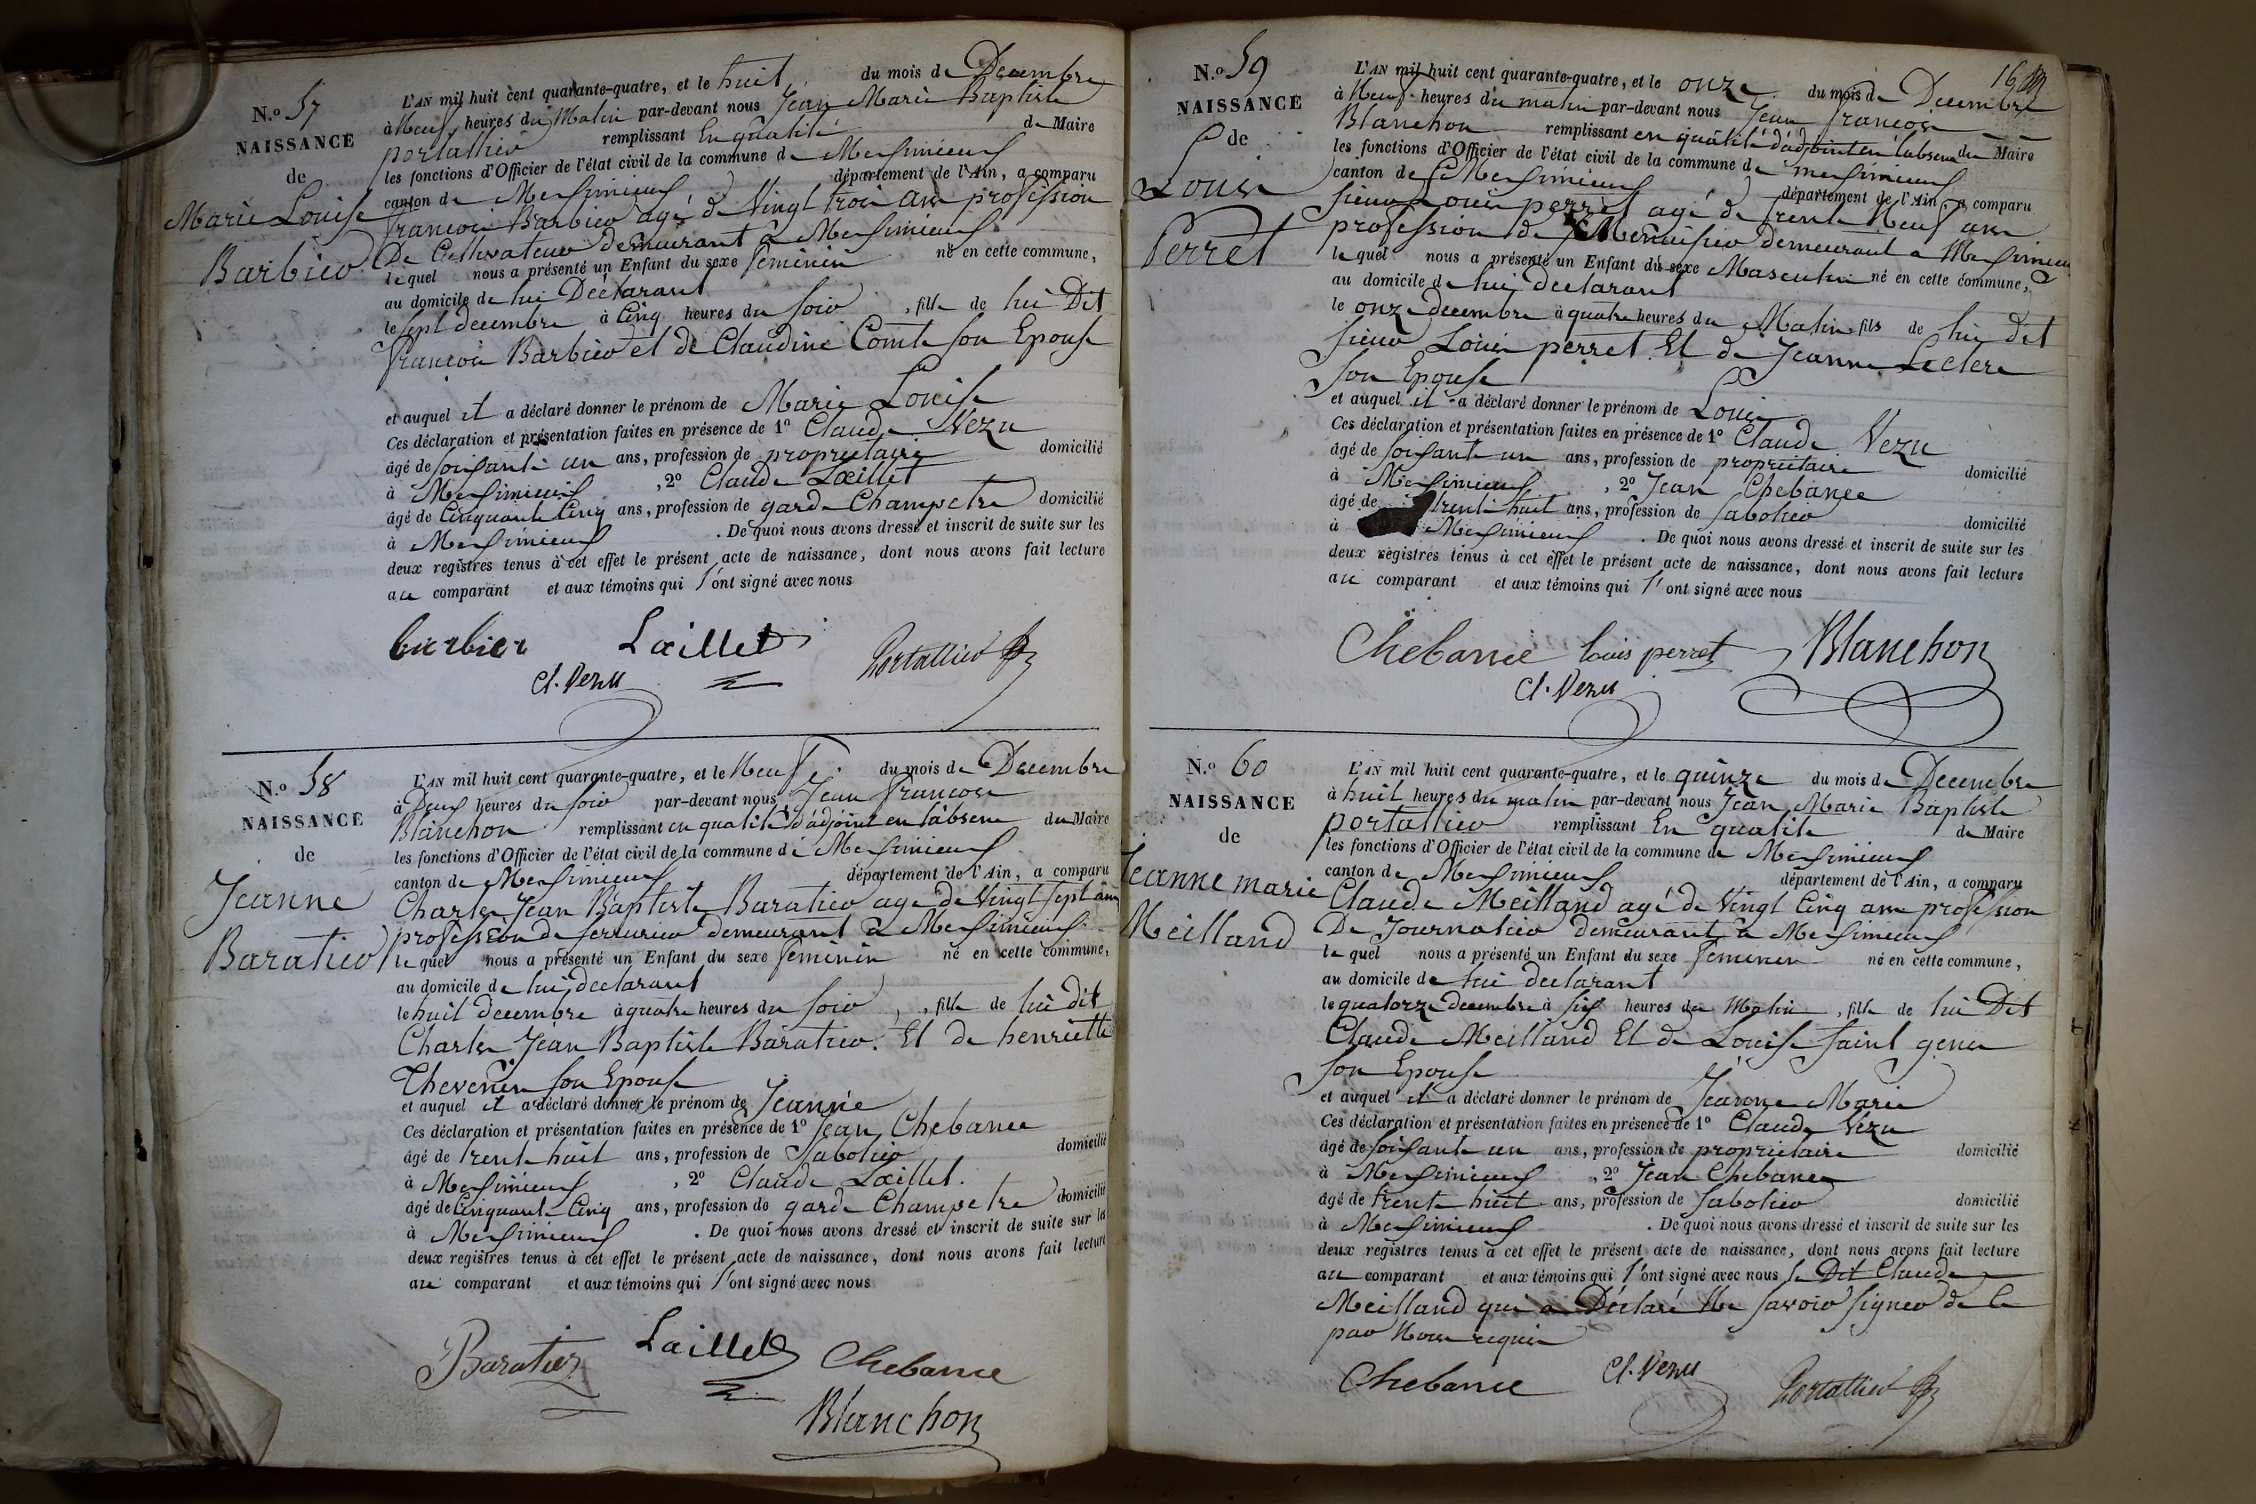 N.º 57
NAISSANCE
de
Marie Louise
Barbier
L'AN mil huit cent quarante-quatre, et le huit du mois de Decembre
à Neuf heures du Matin par-devant nous Jean Marie Baptiste
portallier remplissant En qualité de Maire
les fonctions d'Officier de l'état civil de la commune de Meximieux
canton de Meximieux département de l'Ain, a comparu
françois Barbier agé de Vingt trois ans profession
De Cultivateur demeurant à Meximieux
lequel nous a présenté un Enfant du sexe feminin né en cette commune,
au domicile de lui Déclarant
le sept decembre à Cinq heures du soir, fille de lui Dit
françois Barbier et de Claudine Comte son Epouse
et auquel il a déclaré donner le prénom de Marie Louise
Ces déclaration et présentation faites en présence de 1º Claude Vezu
âgé de soixante un ans, profession de propriétaire domicilié
à Meximieux, 2º Claude Lœillet
âgé de Cinquante Cinq ans, profession de garde Champetre domicilié
à Meximieux. De quoi nous avons dressé et inscrit de suite sur les
deux registres tenus à cet effet le présent acte de naissance, dont nous avons fait lecture
au comparant et aux témoins qui l'ont signé avec nous
barbier Lœillet Portallier
Cl. Vezu
N.º 58
NAISSANCE
de
Jeanne
Baratier
L'AN mil huit cent quarante-quatre, et le Neuf du mois de Decembre
à Deux heures du soir par-devant nous Jean françois
Blanchon remplissant en qualité d'adjoint en l'absence du Maire
les fonctions d'Officier de l'état civil de la commune de Meximieux
canton de Meximieux département de l'Ain, a comparu
Charles Jean Baptiste Baratier age de Vingt sept ans
profession de serrurier demeurant à Meximieux
lequel nous a présenté un Enfant du sexe feminin né en cette commune,
au domicile de lui declarant
le huit decembre à quatre heures du soir, fille de lui dit
Charles Jean Baptiste Baratier. Et de henriette
Thevenin son Epouse
et auquel il a déclaré donner le prénom de Jeanne
Ces déclaration et présentation faites en présence de 1º Jean Chebance
âgé de trente huit ans, profession de Sabotier domicilié
à Meximieux, 2º Claude Lœillet.
âgé de Cinquante Cinq ans, profession de garde Champetre domicilié
à Meximieux. De quoi nous avons dressé et inscrit de suite sur les
deux registres tenus à cet effet le présent acte de naissance, dont nous avons fait lecture
au comparant et aux témoins qui l'ont signé avec nous
Baratier Lœillet Chebance
Blanchon
16
N.º 59
NAISSANCE
de
Louis
Perret
L'AN mil huit cent quarante-quatre, et le onze du mois de Decembre
à Neuf heures du matin par-devant nous Jean françois
Blanchon remplissant en qualité d'adjoint en l'absence du Maire
les fonctions d'Officier de l'état civil de la commune de meximieux
canton de Meximieux département de l'Ain, a comparu
sieur Louis perret agé de trente Neuf ans
profession de Menuisier demeurant a Meximieux
lequel nous a présenté un Enfant du sexe Masculin né en cette commune,
au domicile de lui declarant
le onze decembre à quatre heures du Matin fils de lui dit
sieur Louis perret. Et de Jeanne Leclere
son Epouse
et auquel il a déclaré donner le prénom de Louis
Ces déclaration et présentation faites en présence de 1º Claude Vezu
âgé de soixante un ans, profession de propriétaire domicilié
à Meximieux, 2º Jean Chebance
âgé de trente huit ans, profession de sabotier domicilié
à Meximieux. De quoi nous avons dressé et inscrit de suite sur les
deux registres tenus à cet effet le présent acte de naissance, dont nous avons fait lecture
au comparant et aux témoins qui l'ont signé avec nous
Chebance louis perret Blanchon
Cl. Vezu
N.º 60
NAISSANCE
de
Jeanne marie
Meilland
L'AN mil huit cent quarante-quatre, et le quinze du mois de Decembre
à huit heures du matin par-devant nous Jean Marie Baptiste
portallier remplissant En qualité de Maire
les fonctions d'Officier de l'état civil de la commune de Meximieux
canton de Meximieux département de l'Ain, a comparu
Claude Meilland agé de Vingt Cinq ans profession
De Journalier demeurant à Meximieux
lequel nous a présenté un Enfant du sexe feminin né en cette commune,
au domicile de lui declarant
le quatorze decembre à six heures du Matin, fille de lui Dit
Claude Meilland Et de Louise saint genis
son Epouse
et auquel il a déclaré donner le prénom de Jeanne Marie
Ces déclaration et présentation faites en présence de 1º Claude Vezu
âgé de soixante un ans, profession de propriétaire domicilié
à Meximieux, 2º Jean Chebance
âgé de trente huit ans, profession de sabotier domicilié
à Meximieux. De quoi nous avons dressé et inscrit de suite sur les
deux registres tenus à cet effet le présent acte de naissance, dont nous avons fait lecture
au comparant et aux témoins qui l'ont signé avec nous le Dit Claude
Meilland qui a Déclaré Ne savoir signer de ce
par Nous requis
Chebance Cl. Vezu Portallier